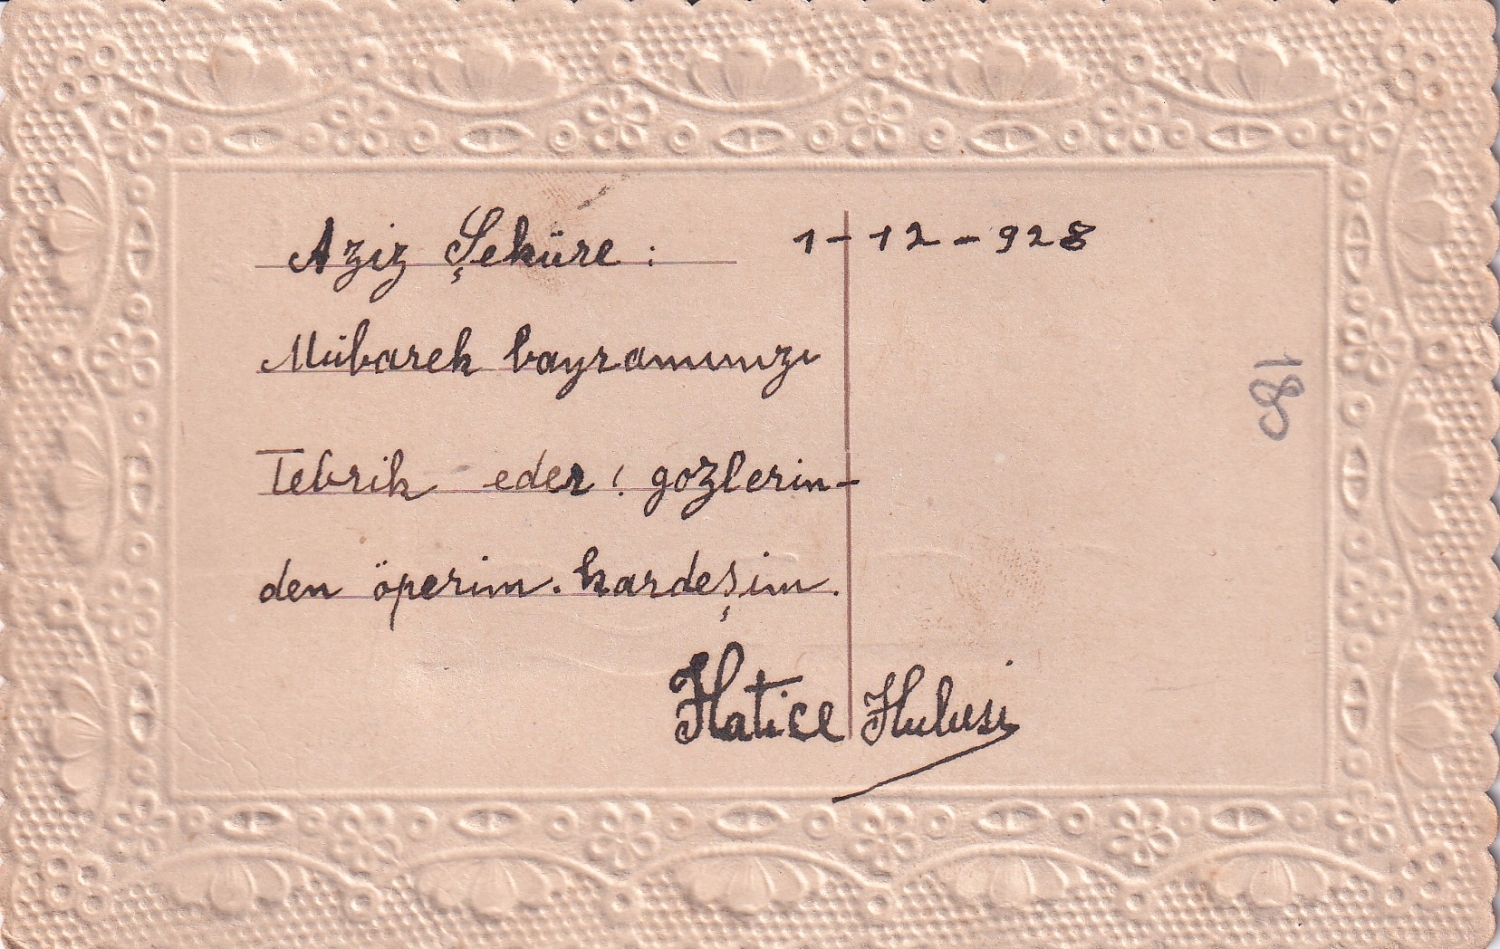 Aziz Şeküre : 1-12-928
Mübarek bayramınızı
Tebrik eder ! gozlerin-
den öperim. kardeşim.
Hatice Hulusi
18